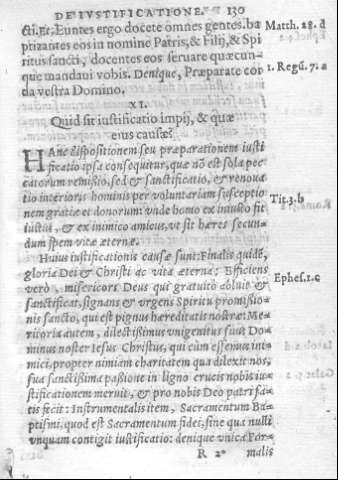 DE IVSTIFICATIONE. 130
cti. Et, Euntes ergo docete omnes gentes. ba
ptizantes eos in nomine Patris, & Filij, & Spi
ritus sancti, docentes eos seruare quæcun-
que mandaui vobis. Denique, Præparate cor
da vestra Domino.
Matth. 28. d
1. Regũ. 7. a
XI.
Quid sit iustificatio impij, & quæ
eius causæ?
HAnc dispositionem seu præparationem iusti
ficatio ipsa consequitur, quæ nõ est sola pec
catorum remißio, sed & sanctificatio, & renoua
tio interioris hominis per voluntariam susceptio
nem gratiæ et donorum vnde homo ex iniusto fit
iustus, & ex inimico amicus, vt sit hæres secun-
dum spem vitæ æternæ.
Tit. 3. b
Huius iustificationis causæ sunt: Finalis quidē,
gloria Dei & Christi ac vita æterna: Efficiens
verò, misericors Deus qui gratuitò abluit &
sanctificat, signans & vngens Spiritu promißio-
nis sancto, qui est pignus hæreditatis nostræ: Me-
ritoria autem, dilectißimus vnigenitus suus Do-
minus noster Iesus Christus, qui cùm essemus ini-
mici, propter nimiam charitatem qua dilexit nos,
sua sanctißima paßione in ligno crucis nobis iu-
stificationem meruit, & pro nobis Deo patri sa-
tis fecit: Instrumentalis item, Sacramentum Ba-
ptismi, quod est Sacramentum fidei, sine qua nulli
vnquam contigit iustificatio: denique vnica For-
Ephes. 1. c
R 2 malis